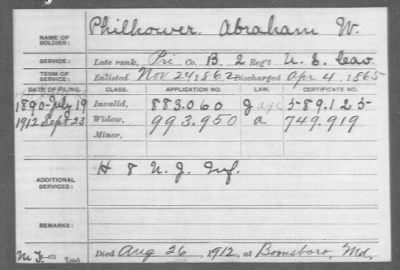 NAME OF SOLDIER: Philhower, Abraham W.
SERVICE: Late rank, Pri Co. B, 2 Reg't U. S. Cav.
TERM OF SERVICE: Enlisted Nov 24, 1862, Discharged Apr 4, 1865
DATE OF FILING. CLASS. APPLICATION NO. LAW. CERTIFICATE NO.
1890-July 19 Invalid, 883.060 g 589.125
1912 Sept 23 Widow, 993.950 a 749.919
Minor,
ADDITIONAL SERVICES: H 8 N. J. Inf.
REMARKS:
Died Aug 26, 1912, at Boonsboro, Md.